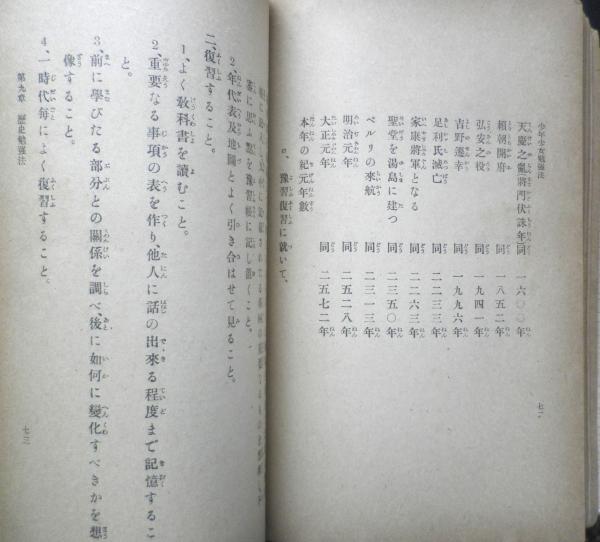 少年少女勉强法
七二
天慶之亂將門伏誅年同 一六〇〇年
賴朝開府 同 一八五二年
弘安之役 同 一九四一年
吉野遷幸 同 一九九六年
足利氏滅亡 同 二二三三年
家康將軍となる 同 二二六三年
聖堂を湯島に建つ 同 二三五〇年
ペルリの來航 同 二五一三年
明治元年 同 二五二八年
大正元年 同 二五七二年
本年の紀元年數
ロ、豫習復習に就いて、
に思ふ點を豫習帳に記し置くこと。
2 年代表及地圖とよく引き合はせて見ること。
二、復習すること。
1、よく敎科書を讀むこと。
2、重要なる事項の表を作り、他人に話の出來る程度まで記憶するこ
と。
3、前に學びたる部分との關係を調べ、後に如何に變化すべきかを想
像すること。
4、一時代每によく復習すること。
第九章 歷史勉强法
七三